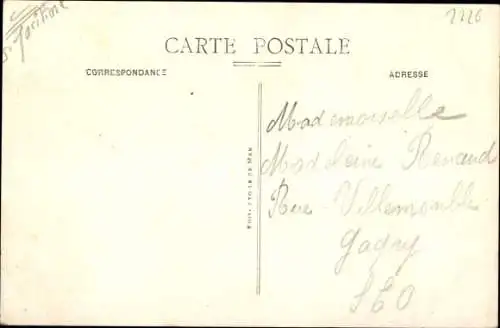 2226
CARTE POSTALE
CORRESPONDANCE
ADRESSE
Mademoiselle
Madeleine Renaud
Rue Villemomble
Gagny
S&O